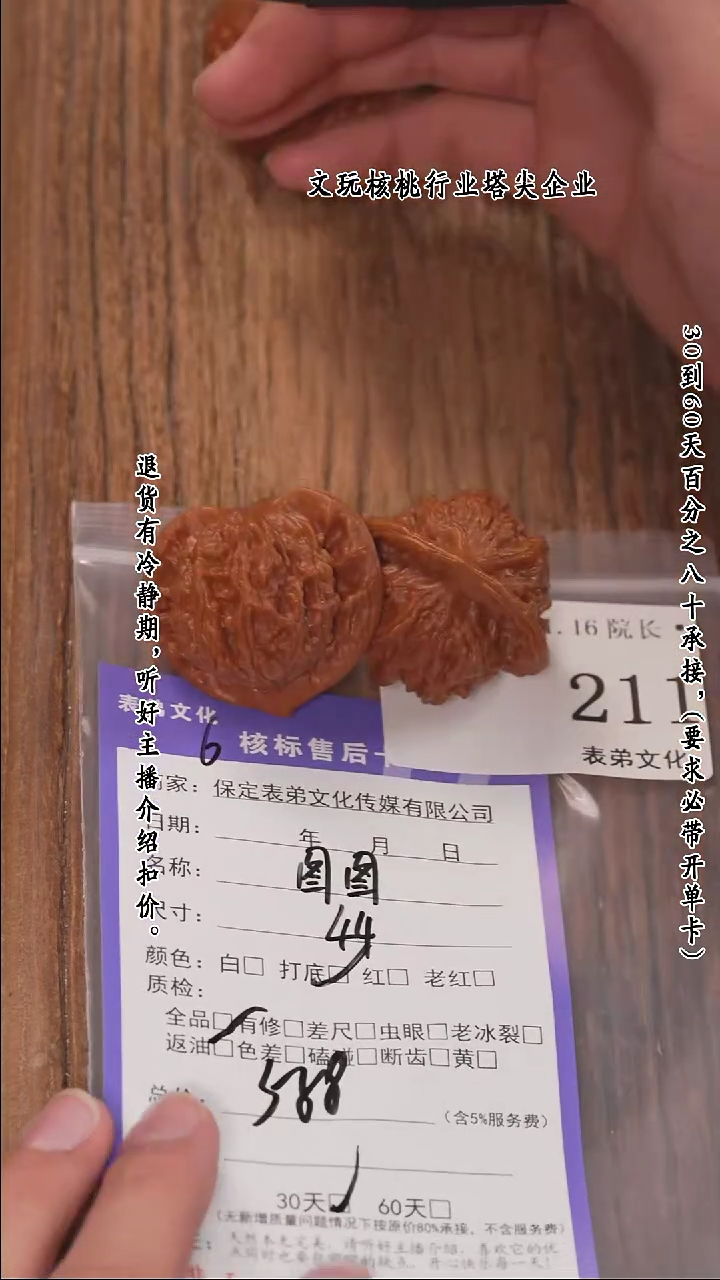 文玩核桃行业塔尖企业
30到60天百分之八十承接,(要求必带开单卡)
退货有冷静期,听好主播介绍扣价。
.16 院长
211
表弟文化
表弟文化
6
核标售后
商家：保定表弟文化传媒有限公司
日期： 年 月 日
名称： 图图
尺寸： 44
颜色：白□ 打底□ 红□ 老红□
质检：
全品□有修□差尺□虫眼□老冰裂□
返油□色差□磕碰□断齿□黄□
总价： 568 (含5%服务费)
30天□ 60天□
(无新增质量问题情况下按原价80%承接，不含服务费)
天然本无完美，请听好主播介绍，喜欢它的优